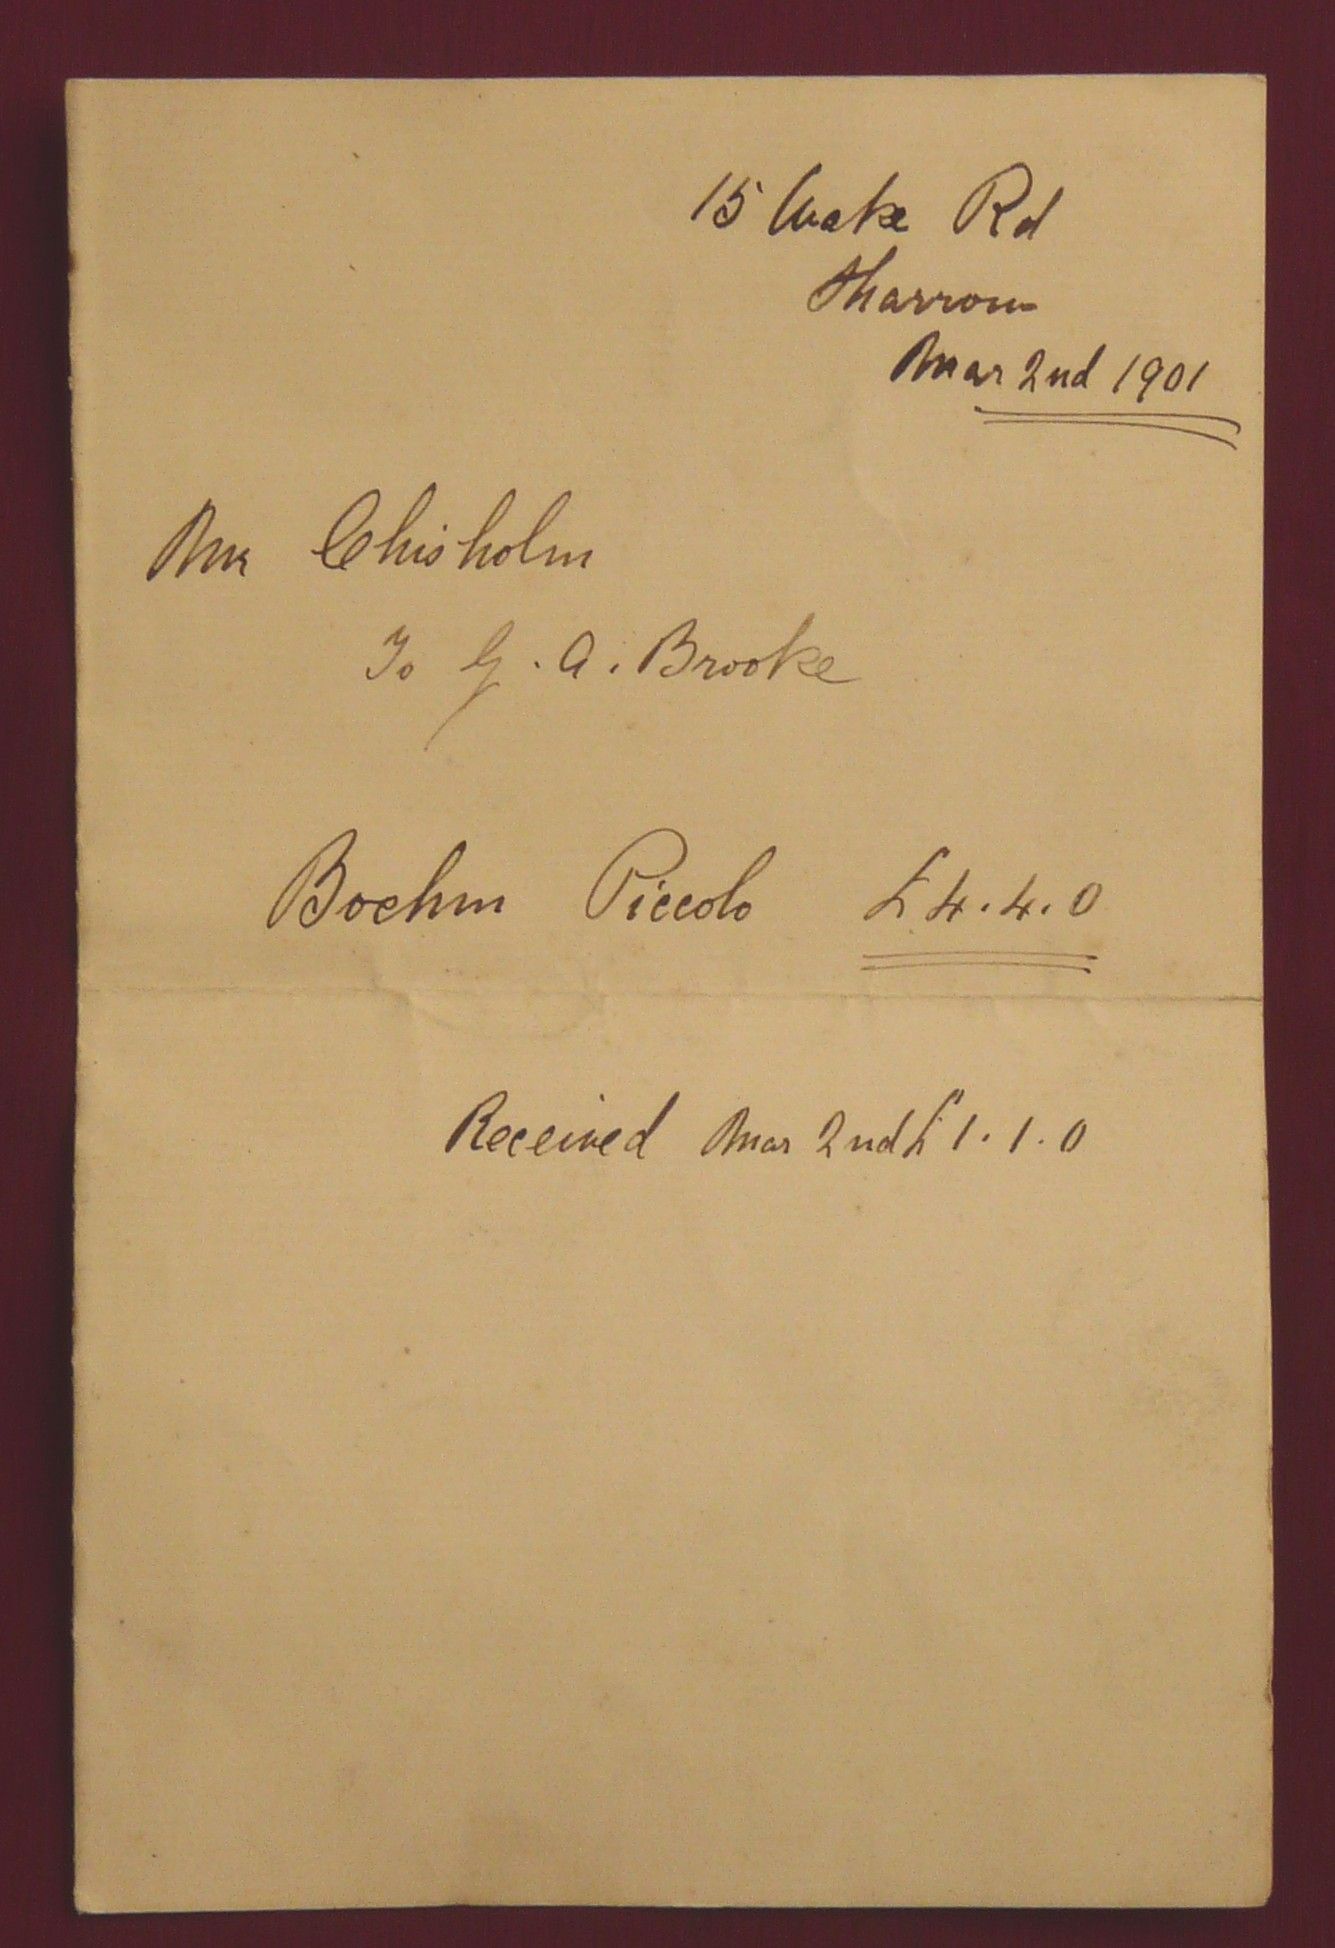 15 Wake Rd
Sharrow
Mar 2nd 1901
Mr Chisholm
To G. A. Brooke
Boehm Piccolo £4.4.0
Received Mar 2nd £1.1.0